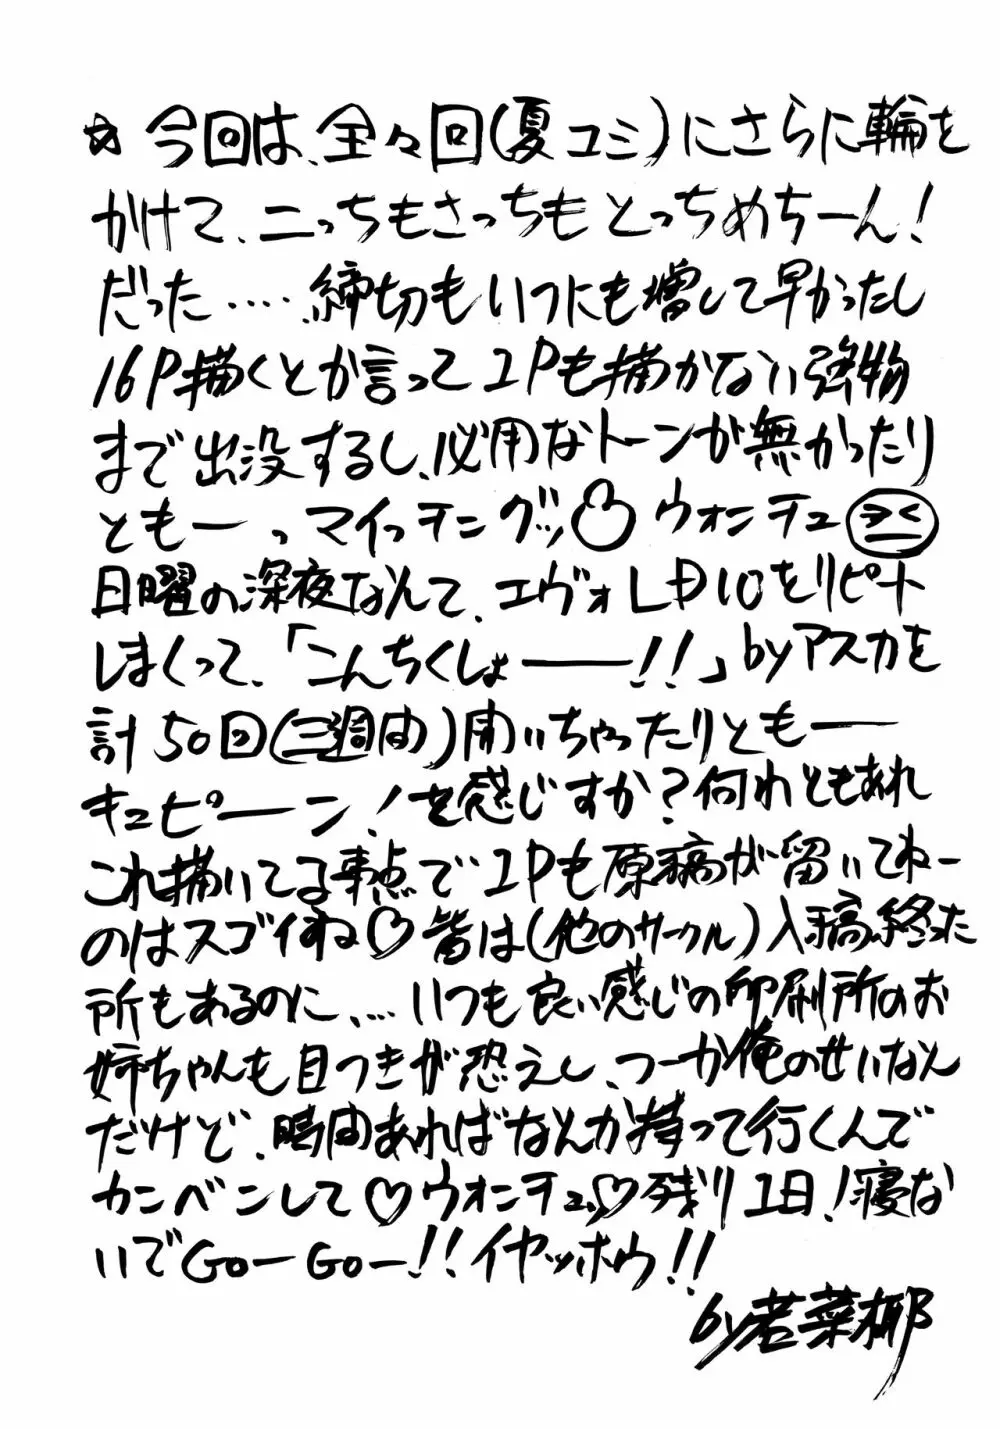 ☆今回は、全々回(夏コミ)にさらに輪を
かけて、ニっちもさっちもとっちめちーん!
だった‥‥締切もいつにも増して早かったし
16P描くとか言って1Pも描かない強物
まで出没するし、必用なトーンが無かったり
ともーっマイッチングッ♡ウォンチュ
日曜の深夜なんて、エヴァLD10をリピート
しまくって、「こんちくしょーーー!!」byアスカを
計50回(三週間)聞いちゃったりともーー
キュピーーン!を感じすか?何れともあれ
これ描いてる事点で1Pも原稿が留いてねー
のはスゴイすね♡皆は(他のサークル)入稿終った
所もあるのに、…いつも良い感じの印刷所のお
姉ちゃんも目つきが恐えし、つーか俺のせいなん
だけど、時間あればなんか持って行くんで
カンベンして♡ウォンチュ♡残り1日!寝な
いでGoーGoー!!イヤッホウ!!
by若菜椰